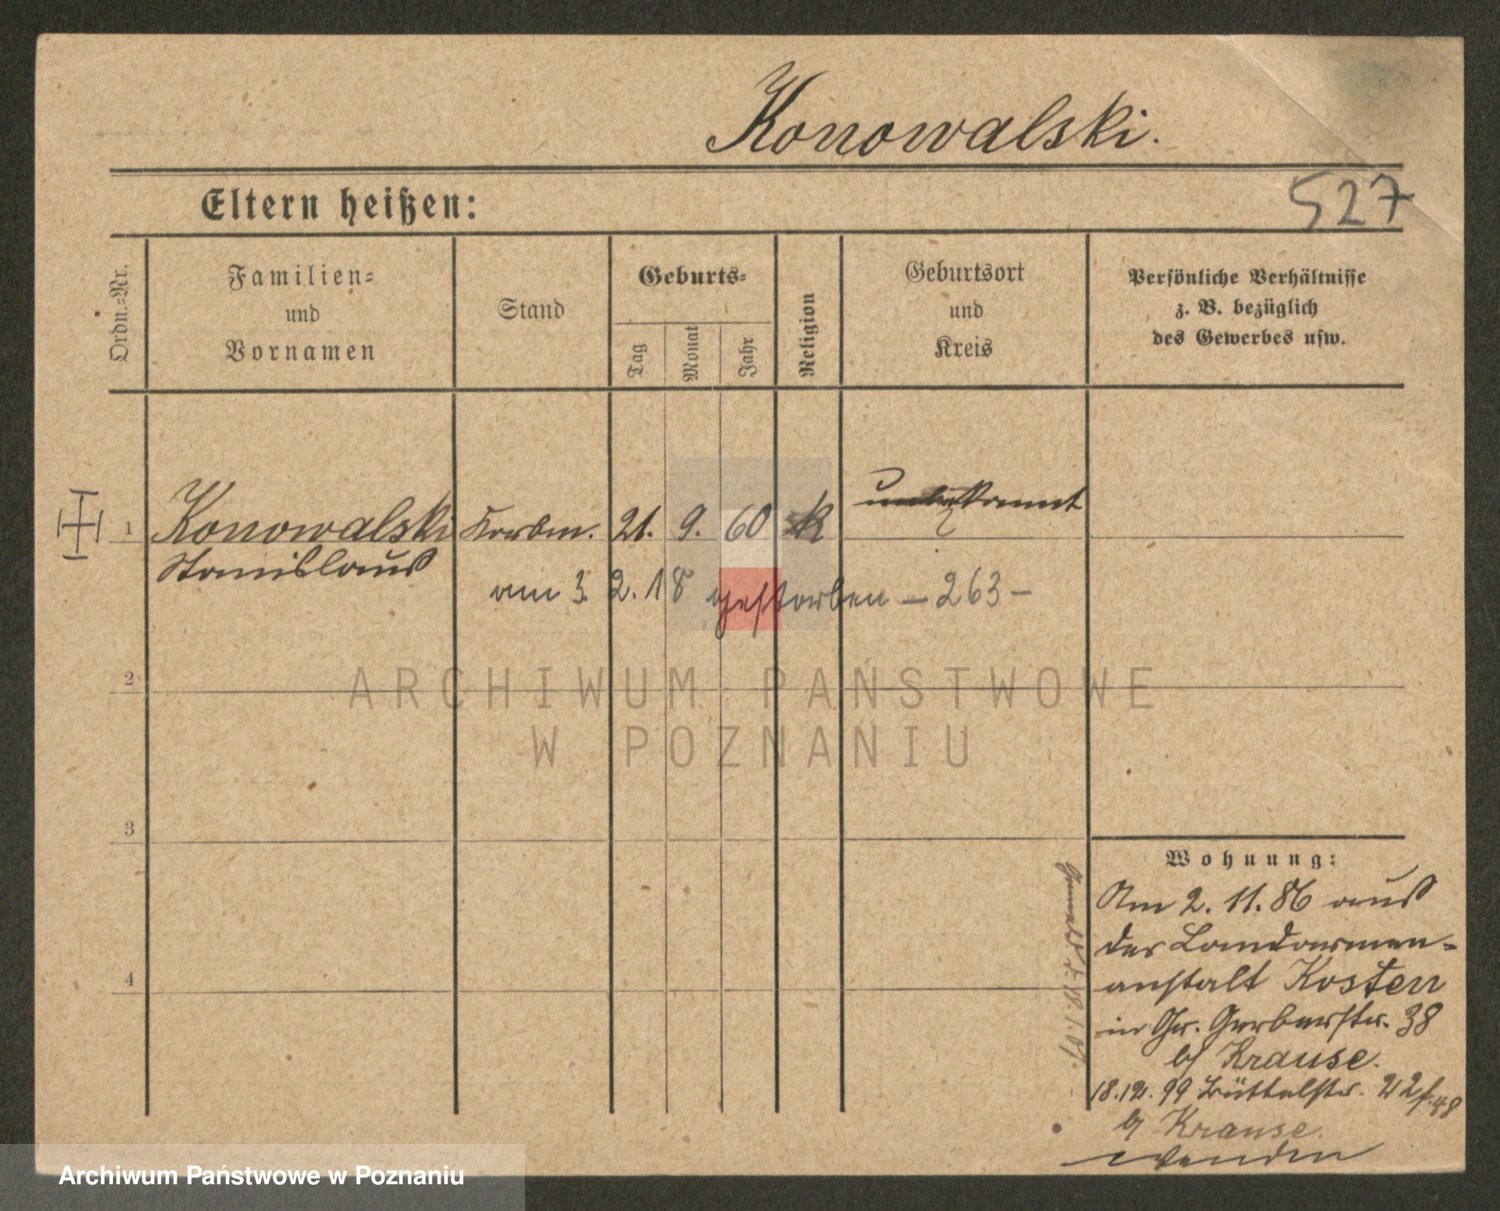 Konowalski.
Eltern heißen:
527
Ordn.-Nr.
Familien-
und
Vornamen
Stand
Geburts-
Tag
Monat
Jahr
Religion
Geburtsort
und
Kreis
Persönliche Verhältnisse
z. B. bezüglich
des Gewerbes usw.
1 Konowalski Korbm. 21. 9. 60 K unbekannt
Stanislaus
am 3. 2. 18 gestorben - 263 -
ARCHIWUM PAŃSTWOWE
W POZNANIU
2
3
4
Wohnung:
Am 2. 11. 86 aus
der Landarmen-
anstalt Kosten
in Gr. Gerberstr. 38
b/ Krause.
18. 12. 99 Büttelstr.
b/ Krause.
wenden
Archiwum Państwowe w Poznaniu